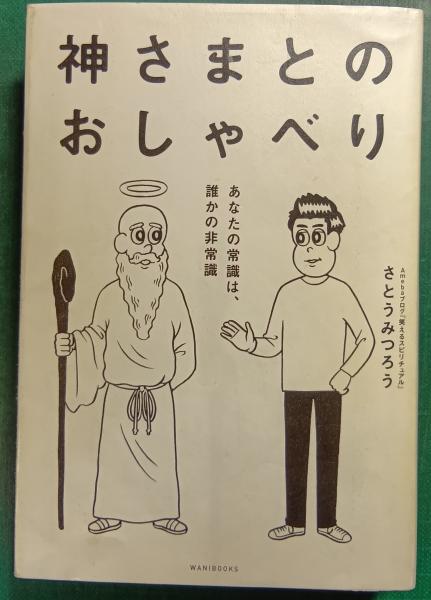 神さまとの
おしゃべり
あなたの常識は、
誰かの非常識
Amebaブログ『笑えるスピリチュアル』
さとうみつろう
WANIBOOKS